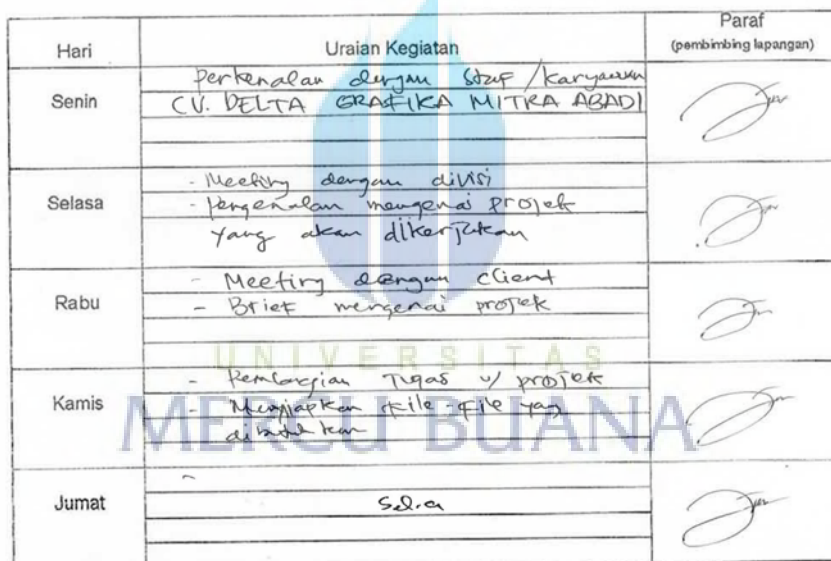 Hari Uraian Kegiatan Paraf
(pembimbing lapangan)
Senin
Perkenalan dengan Staf / Karyawan
CV. DELTA GRAFIKA MITRA ABADI
Selasa
- Meeting dengan divisi
- pengenalan mengenai projek
yang akan dikerjakan
Rabu
- Meeting dengan client
- Brief mengenai projek
UNIVERSITAS
MERCU BUANA
Kamis
- Pembagian Tugas u/ projek
- Menyiapkan file-file yang
dibutuhkan
Jumat
-